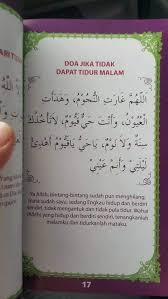 DOA JIKA TIDAK
DAPAT TIDUR MALAM
اَللّٰهُمَّ غَارَتِ النُّجُوْمُ، وَهَدَأَتِ
الْعُيُوْنُ، وَأَنْتَ حَيٌّ قَيُّوْمٌ، لَا تَأْخُذُكَ
سِنَةٌ وَلَا نَوْمٌ، يَا حَيُّ يَاقَيُّوْمُ أَهْدِئْ
لَيْلِيْ وَأَنِمْ عَيْنِيْ
Ya Allah, bintang-bintang sudah pun menghilang,
mata sudah sayu, sedang Engkau hidup dan berdiri
sendiri, tidak mengantuk dan tidak pula tidur. Wahai
(Allah) yang hidup dan berdiri sendiri, tenangkanlah
malamku dan tidurkanlah mataku.
17